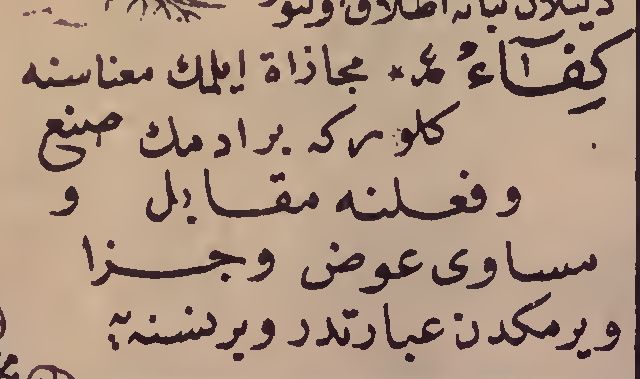 دينلان نباته اطلاق اولنور
كِفَآءٌ ع* مجازاة ايلمك معناسنه
كلور كه بر ادمك صنع
و فعلنه مقابل و
مساوى عوض و جزا
ويرمكدن عبارتدر و بر نسنه يه